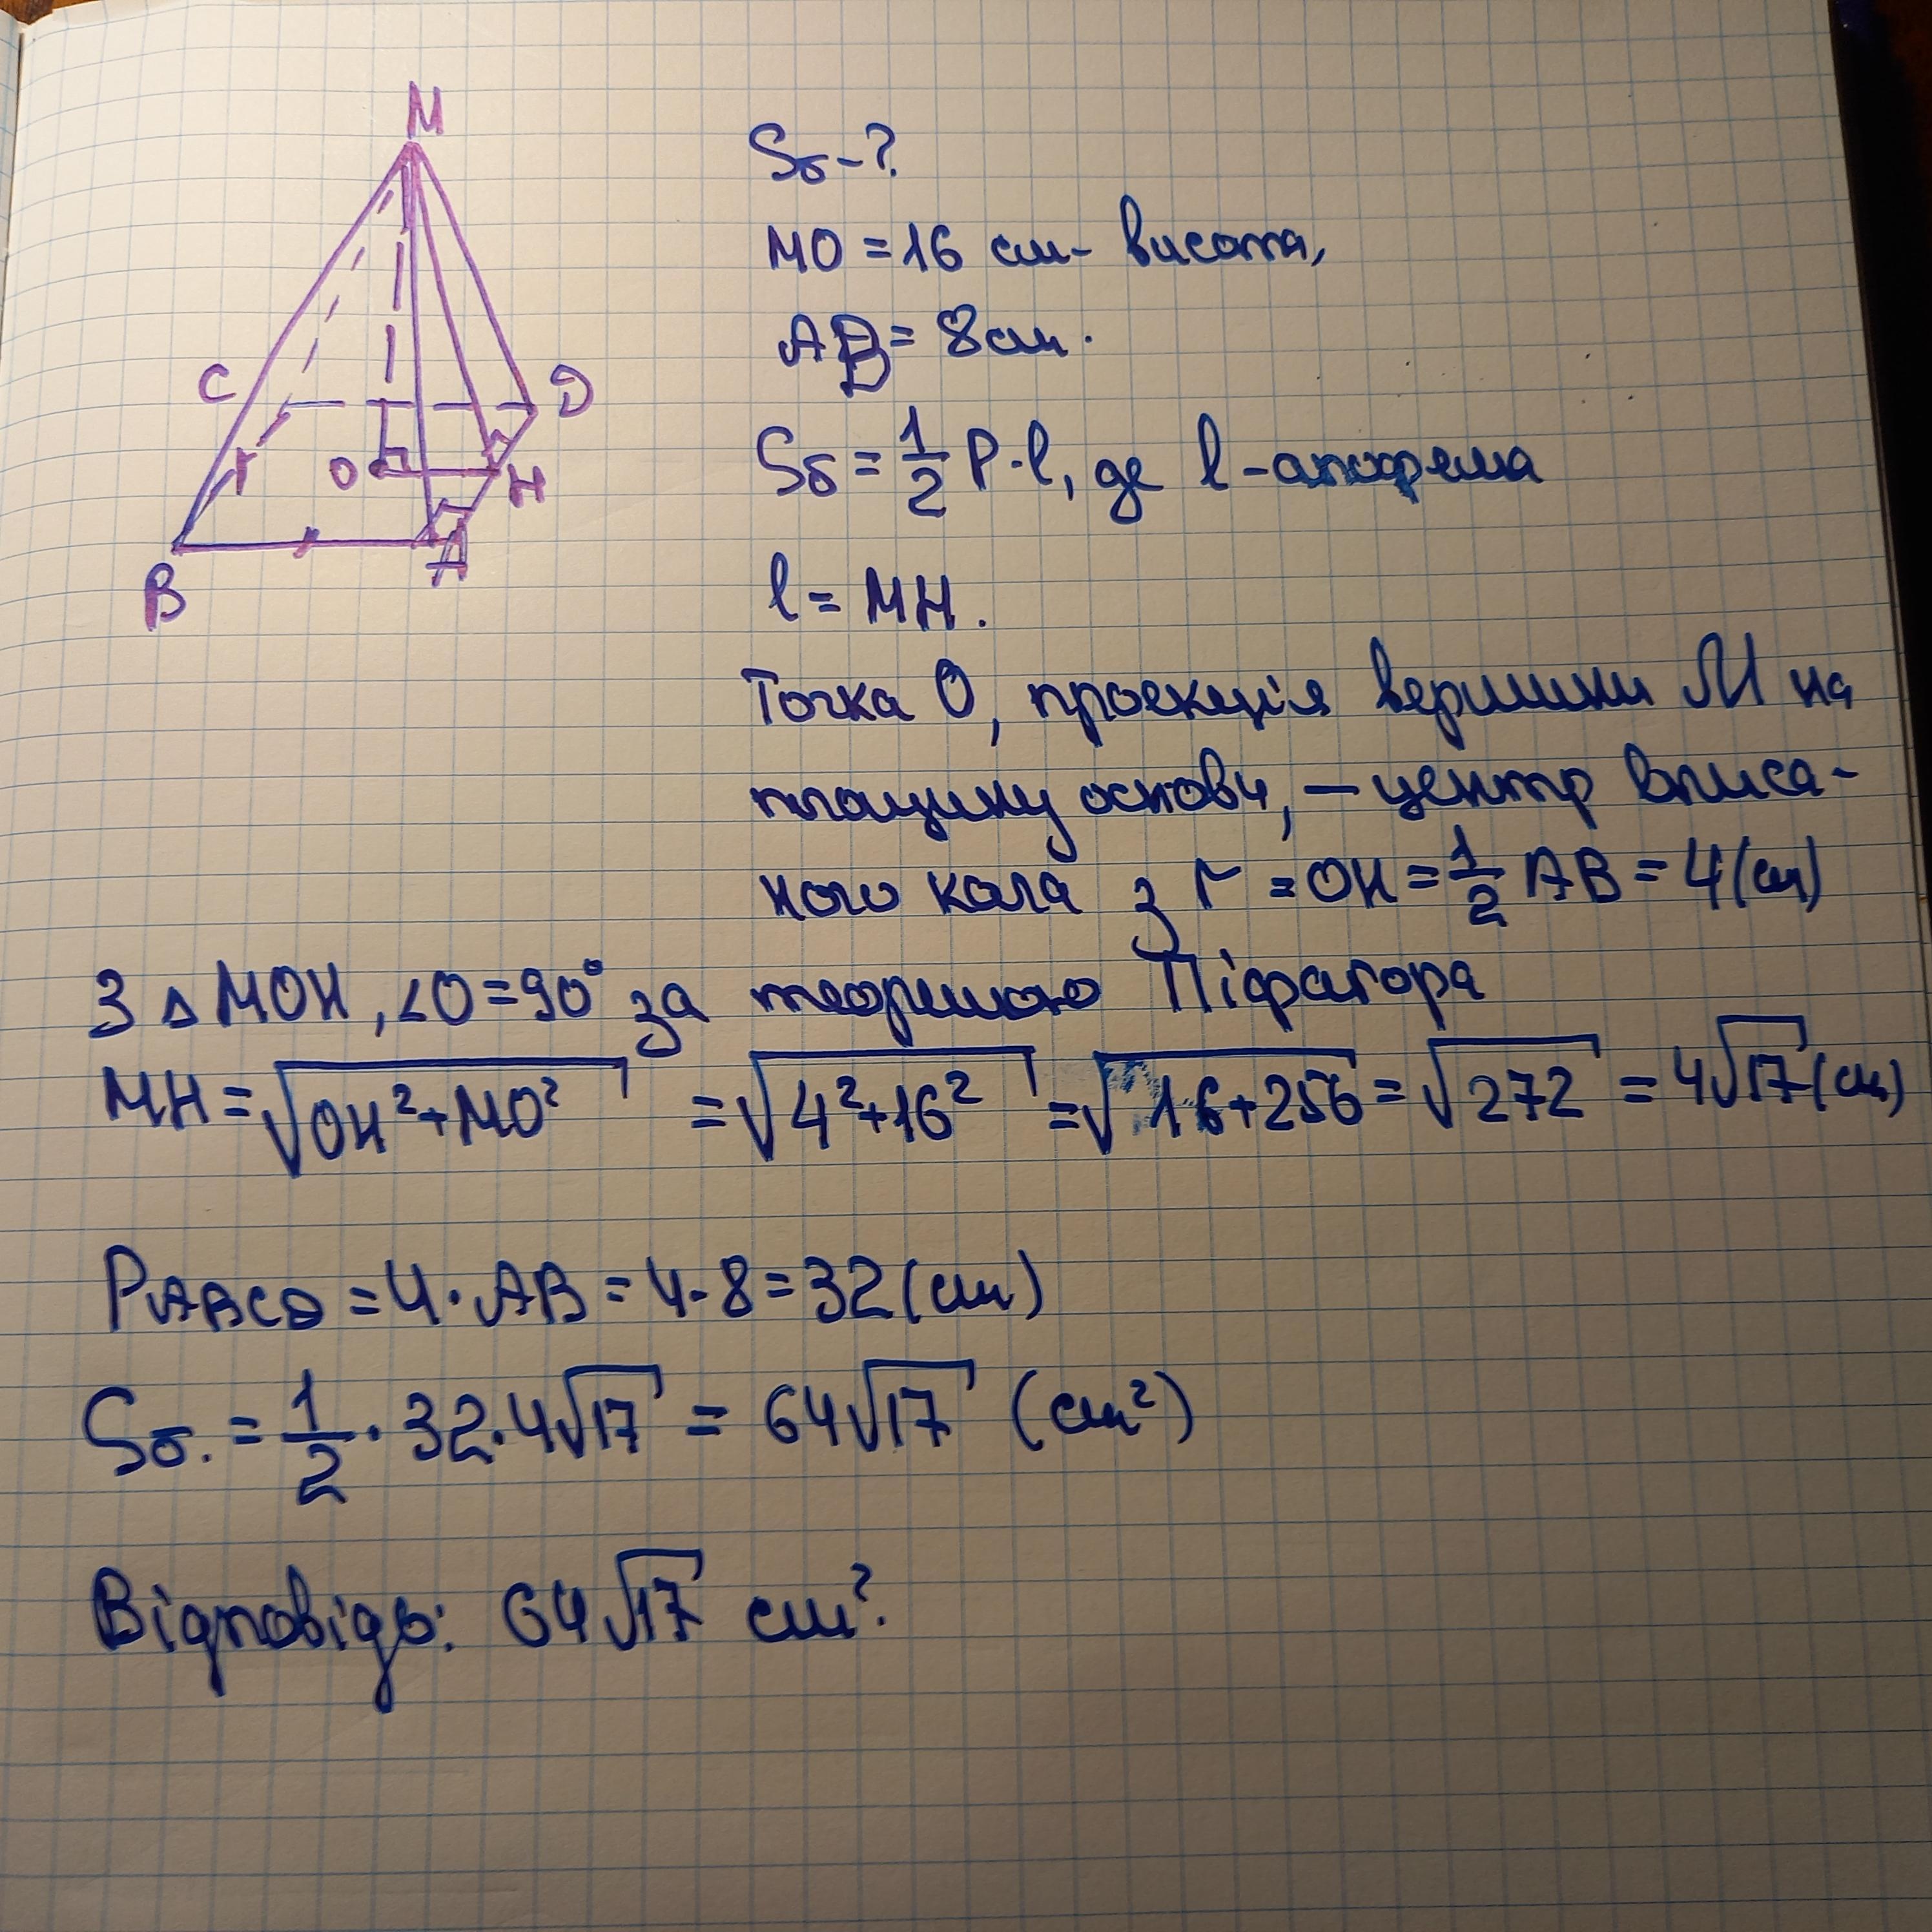 M
C
D
O
H
B
A
Sб-?
MO = 16 см - висота,
AB = 8 см.
Sб = 1/2 P·l, де l - апофема
l = MH.
Точка O, проекція вершини M на
площину основи, – центр вписа-
ного кола з r = OH = 1/2 AB = 4 (см)
З △ MOH, ∠O = 90° за теоремою Піфагора
MH = √(OH² + MO²) = √(4² + 16²) = √(16 + 256) = √272 = 4√17 (см)
PABCD = 4 · AB = 4 · 8 = 32 (см)
Sб. = 1/2 · 32 · 4√17 = 64√17 (см²)
Відповідь: 64√17 см².